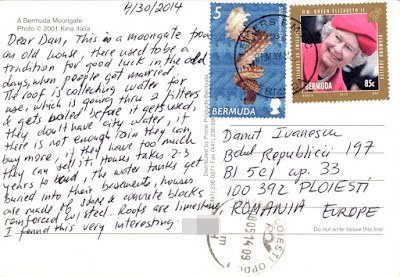 A Bermuda Moongate
Photo © 2001 Kina Italia
4/30/2014
Dear Dan, This is a moongate from
an old house, there used to be a
tradition for good luck in the old
days, when people got married.
The roof is collecting water for
use, which is going thru 3 filters
& gets boiled before it gets used,
they don't have city water, if
there is not enough rain they can
buy more, if they have too much
they can sell it. Houses takes 2-3
years to build, the water tanks get
buried into their basements, houses
are made of stone & concrete blocks
reinforced w/ steel. Roofs are limestone,
I found this very interesting.
5
BERMUDA
H.M. QUEEN ELIZABETH II
BERMUDA
85c
Danut Ivanescu
Bdul Republicii 197
Bl 5C1 ap. 33
100 392 PLOIESTI
ROMANIA EUROPE
Do not write below this line